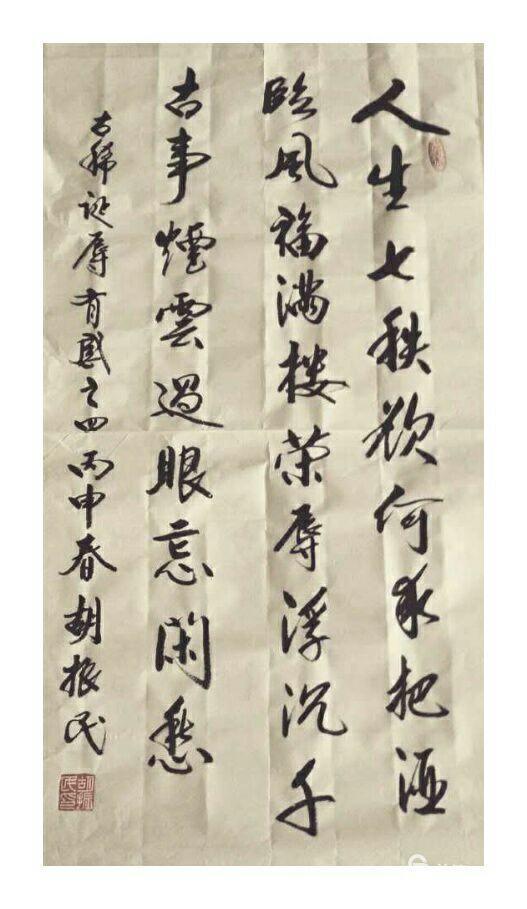 人生七秩欲何求把酒
临风福满楼荣辱浮沉千
古事煙雲過眼忘闲愁
古稀诞辱有感之四丙申春胡振民
胡振民印